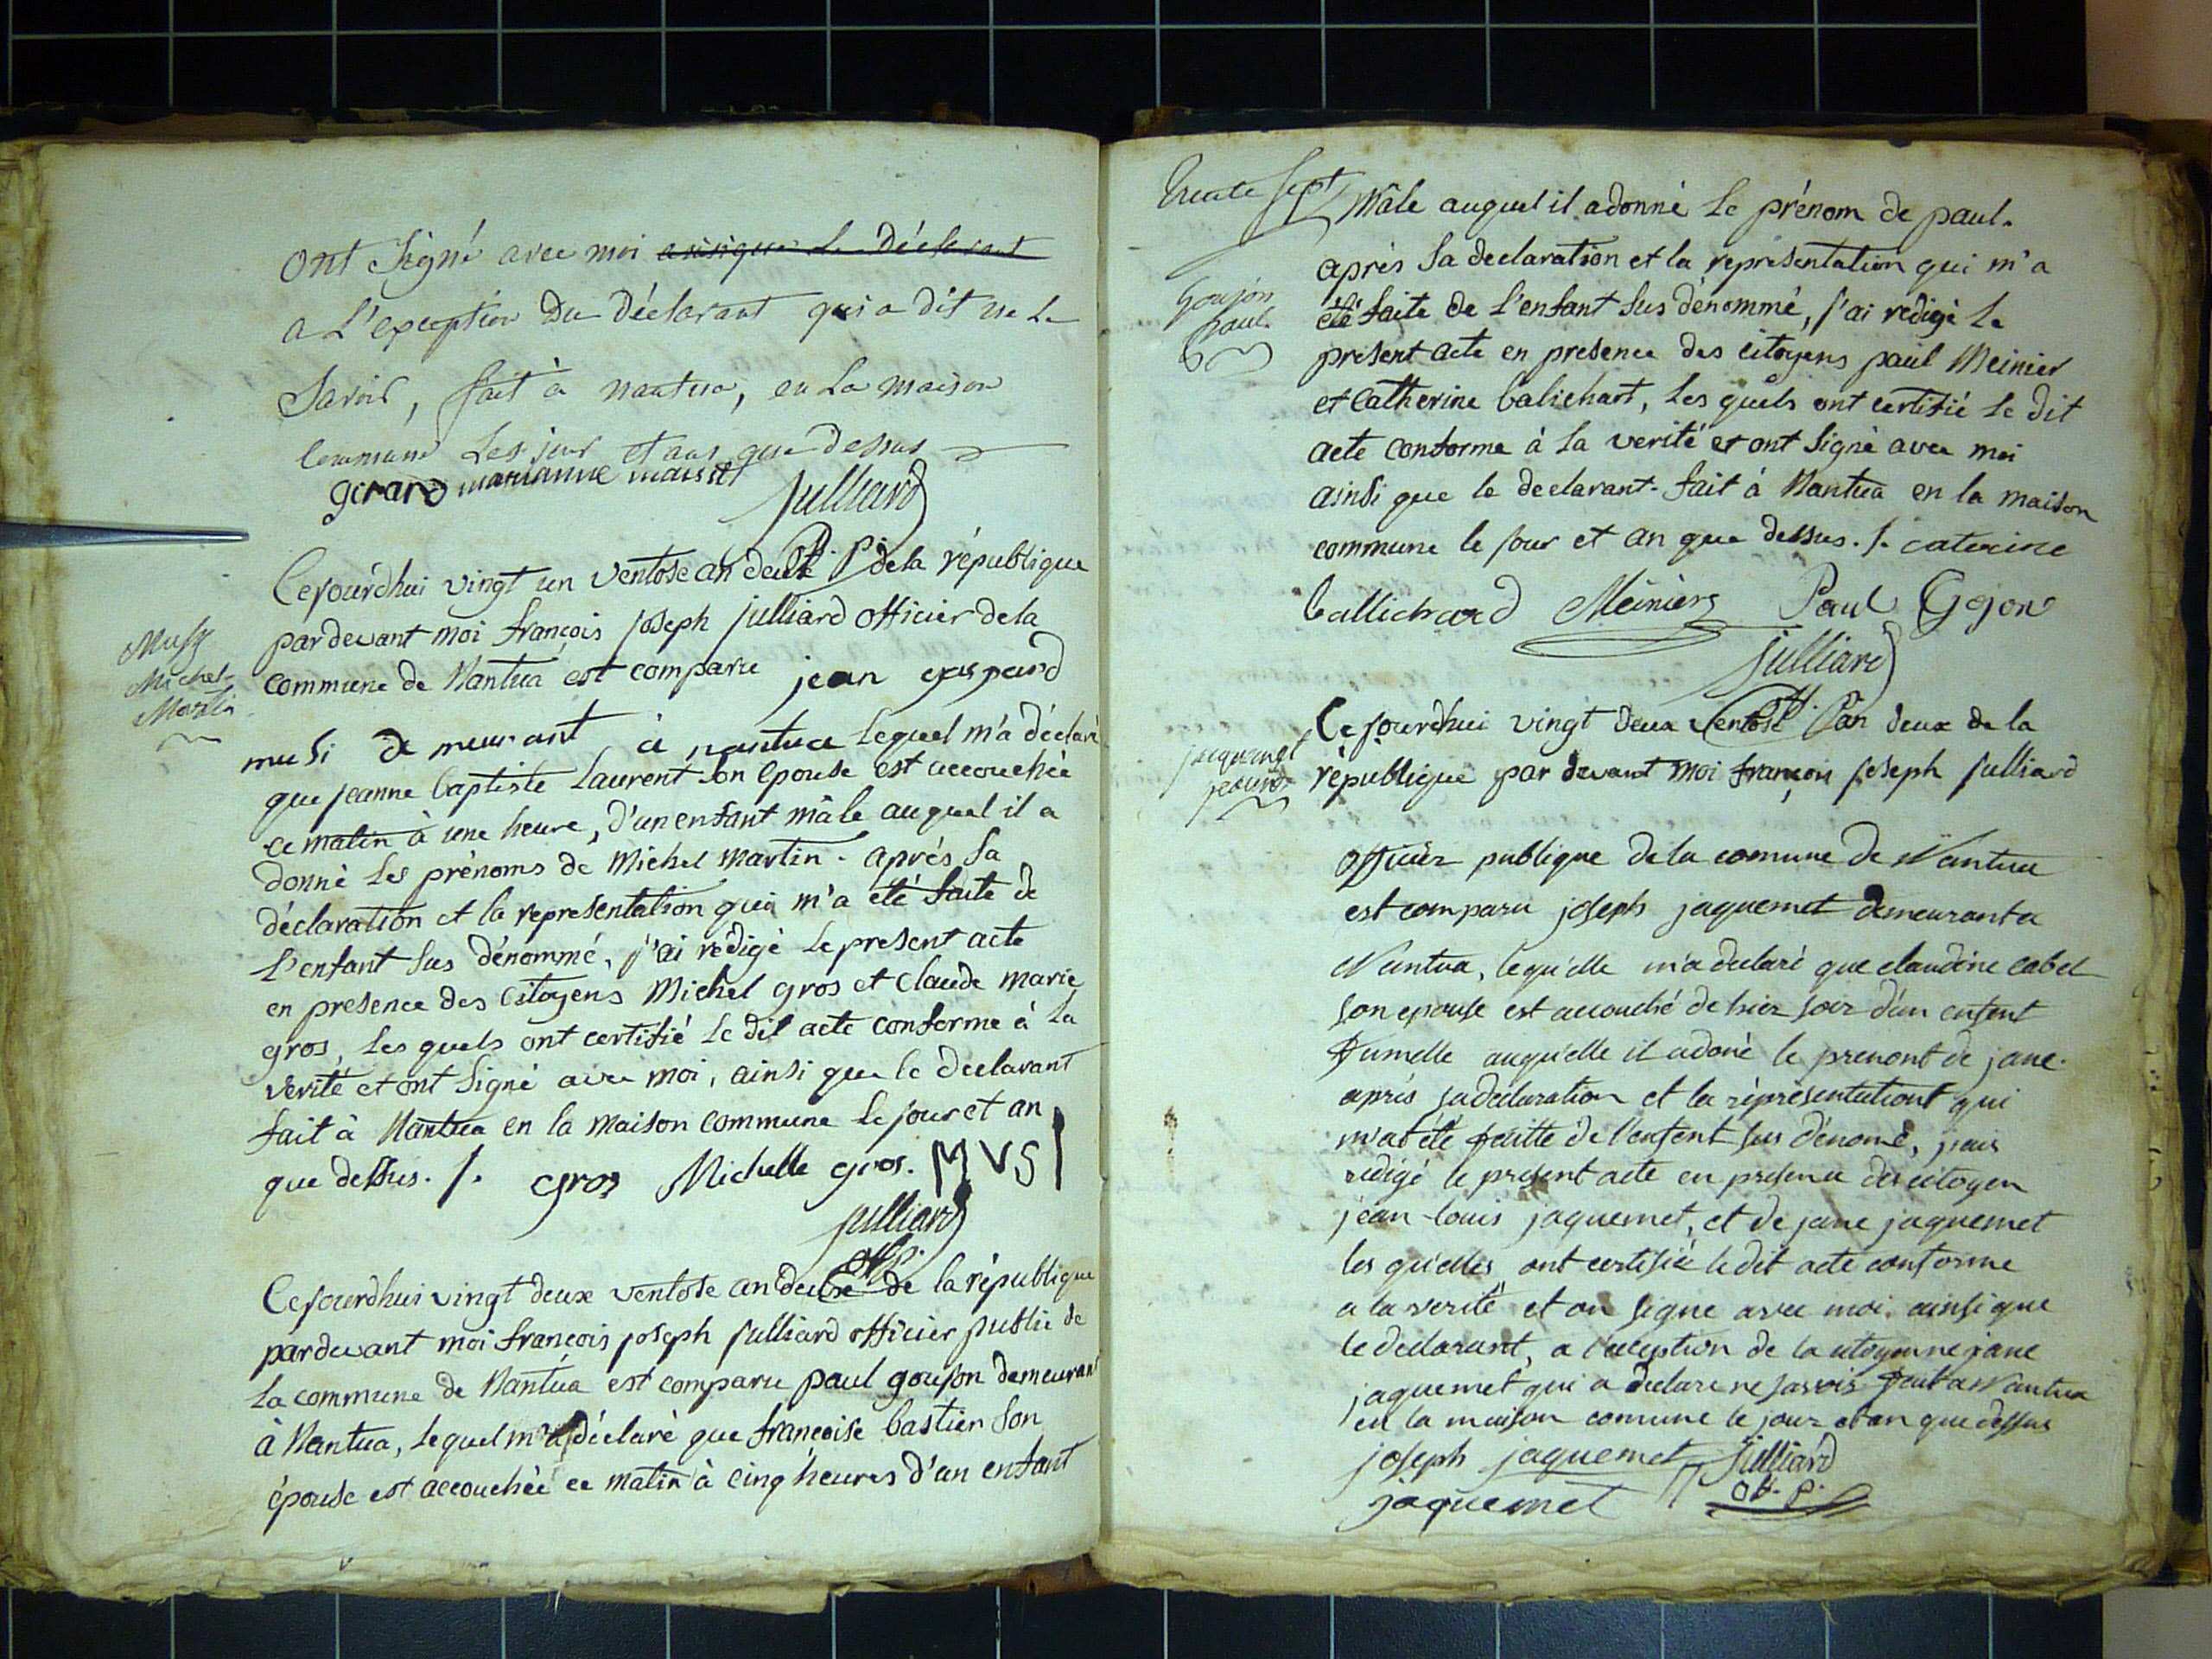 ont signé avec moi ainsique le déclarant
a L'exception du déclarant qui a dit ne le
savoir, fait à nantua, en La maison
commune Les jour et an que dessus
girard marianne maisset
julliard
of. p.
Cejourdhui vingt un ventose an deux de la république
Musy
Michel-
Martin
pardevant moi françois joseph julliard officier de la
commune de Nantua est comparu jean gaspard
musi demeurant à nantua lequel m'a déclaré
que jeanne baptiste Laurent son epouse est accouchée
ce matin à une heure, d'un enfant mâle auquel il a
donné les prénoms de Michel Martin. après sa
déclaration et la representation qui m'a été faite de
l'enfant sus dénommé, j'ai rédigé le present acte
en presence des citoyens Michel gros et Claude marie
gros, les quels ont certifié le dit acte conforme à la
verité et ont signé avec moi, ainsi que le declarant
fait à Nantua en la maison commune le jour et an
que dessus. /. gros Michelle gros. MVSI
julliard
of. p.
Cejourdhui vingt deux ventose an deux de la république
pardevant moi françois joseph julliard officier public de
la commune de Nantua est comparu paul goujon demeurant
à Nantua, lequel m'a déclaré que françoise bastier son
épouse est accouchée ce matin à cinq heures d'un enfant
trente sept
Mâle auquel il a donné le prénom de paul.
après sa declaration et la representation qui m'a
Goujon
paul.
été faite de l'enfant sus dénommé, j'ai redigé le
present acte en presence des citoyens paul Meinier
et Catherine balichart, les quels ont certifié le dit
acte conforme à la verité et ont signé avec moi
ainsi que le declarant. fait à Nantua en la maison
commune le jour et an que dessus. /. caterine
ballichard Meiniers Paul Gojon
julliard
of. p.
Cejourdhui vingt deux ventose l'an deux de la
jaquemet
république par devant moi françois joseph julliard
officier publique de la comune de Nantua
est comparu joseph jaquemet demeurant a
Nantua, lequ'elle m'a declaré que claudine cabet
son epouse est accouché de hier soir d'un enfent
fumelle auqu'elle il a doné le prenont de jane.
apris sa declaration et la réprésentationt qui
m'at été faitte de l'enfent sus dénomé, j'ais
redigé le present acte en presence des citoyen
jean-louis jaquemet, et de jane jaquemet
les qu'elles ont certifié le dit acte conforme
a la verité et on signe avec moi ainsi que
le declarant, a l'exception de la citoyenne jane
jaquemet qui a declare ne savois fait a Nantua
en la maison comune le jour et an que dessus
joseph jaquemet julliard
jaquemet of. p.